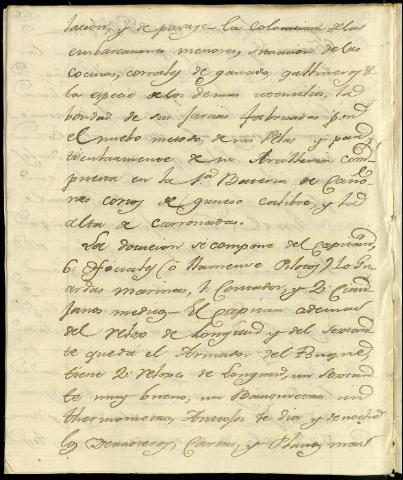 tacion, y de pasage la colocacion de las
embarcaciones menores, situacion de las
Cocinas, corrales de ganado, gallineros &.
la especie de los demas utencilios, la
bondad de sus jarcias fabricadas por
el nuebo metodo, de sus Velas y par-
ticularmente de su Artilleria com-
puesta en la 1.a Bateria de Caño-
nes cortos de grueso calibre, y la
alta de carronadas.
La dotacion se compone del Capitan,
6. Oficiales (ò llamense Pilotos) 10 Gu-
ardas marinas, 1. Contador, y 2. Ciru-
janos medicos - El capitan ademas
del Relox de Longitud y del Sextan-
te que da el Armador del Buque,
tiene 2. Reloxes de Longitud, un Sextan-
te muy bueno, un Barometro un
thermometro, Anteojos de dia y de noche
los Derroteros, Cartas, y Planos mas